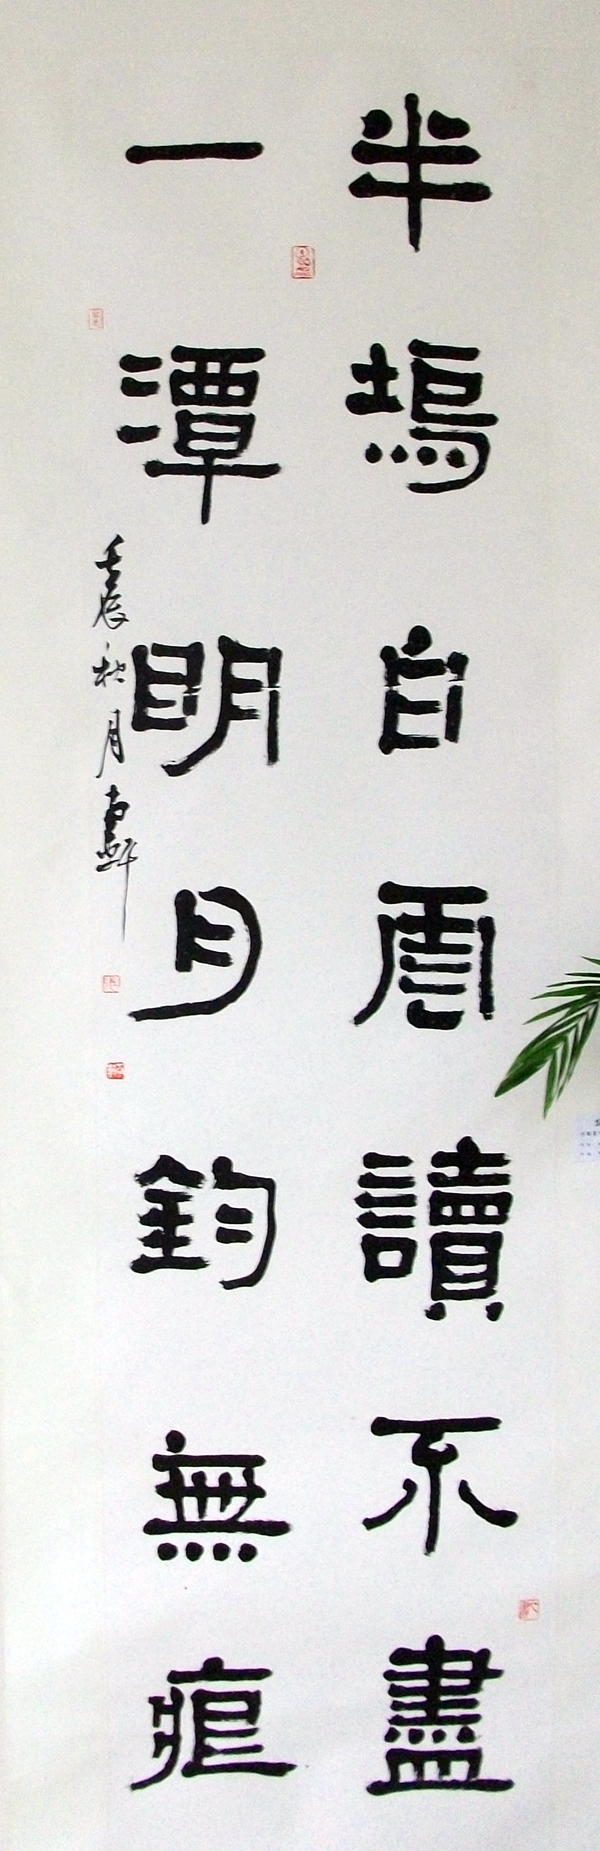 半塢白雲讀不盡
一潭明月鈞無痕
壬辰秋月